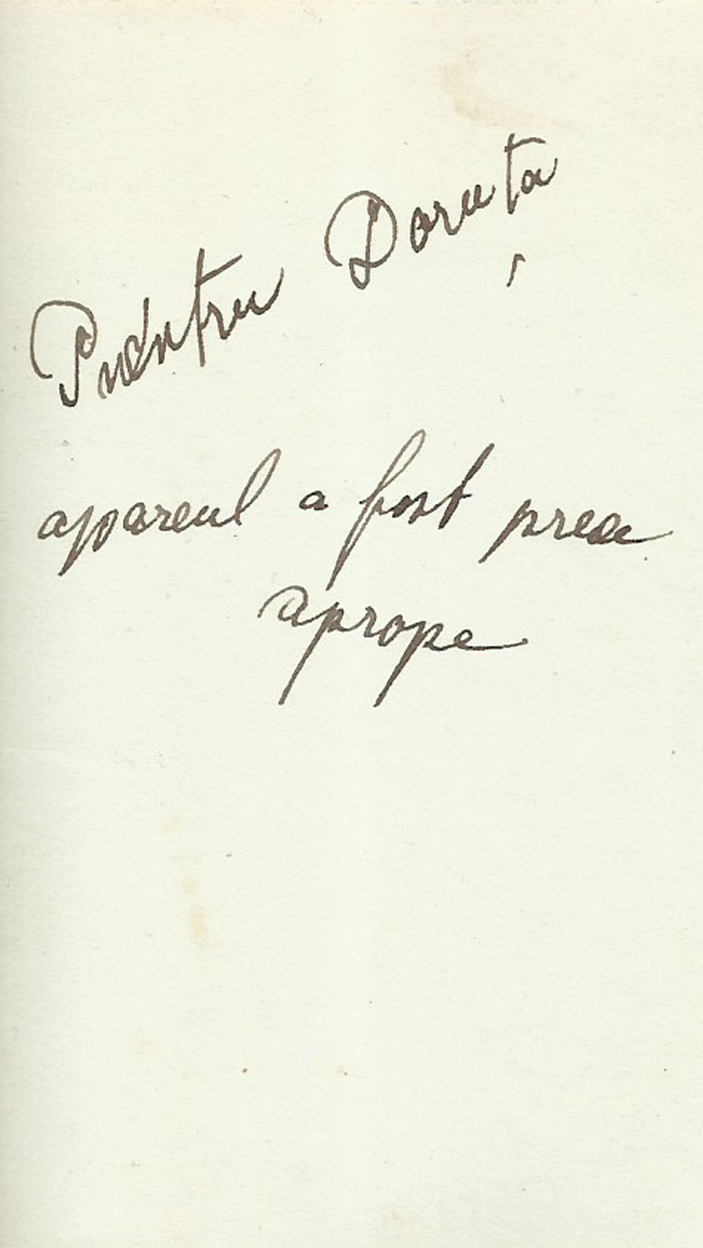 Pentru Doruța
apareul a fost prea
aprope